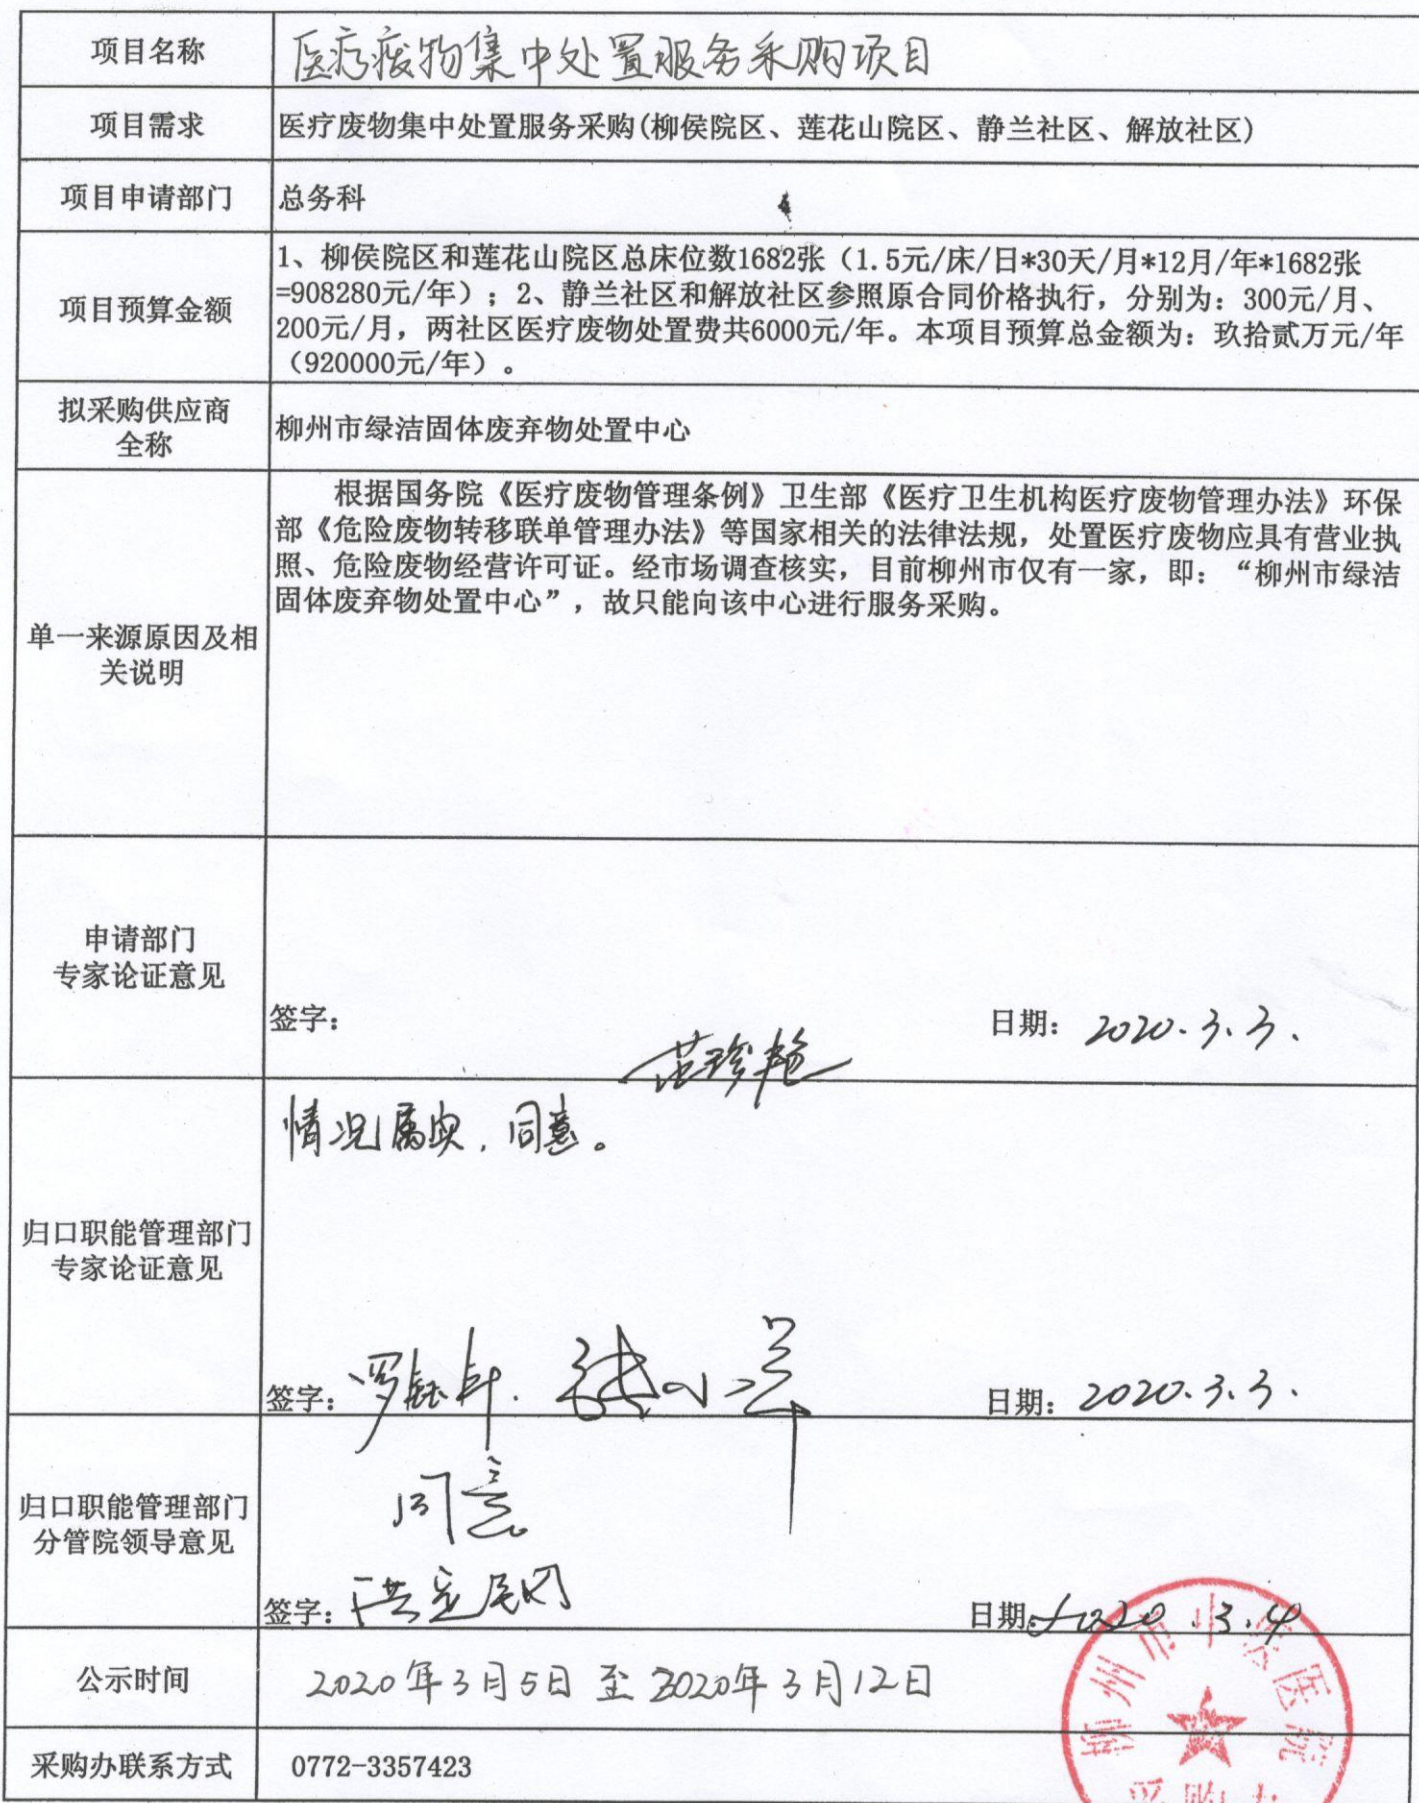 项目名称
医疗废物集中处置服务采购项目
项目需求
医疗废物集中处置服务采购(柳侯院区、莲花山院区、静兰社区、解放社区)
项目申请部门
总务科
项目预算金额
1、柳侯院区和莲花山院区总床位数1682张（1.5元/床/日*30天/月*12月/年*1682张
=908280元/年）；2、静兰社区和解放社区参照原合同价格执行，分别为：300元/月、
200元/月，两社区医疗废物处置费共6000元/年。本项目预算总金额为：玖拾贰万元/年
（920000元/年）。
拟采购供应商
全称
柳州市绿洁固体废弃物处置中心
单一来源原因及相
关说明
根据国务院《医疗废物管理条例》卫生部《医疗卫生机构医疗废物管理办法》环保
部《危险废物转移联单管理办法》等国家相关的法律法规，处置医疗废物应具有营业执
照、危险废物经营许可证。经市场调查核实，目前柳州市仅有一家，即：“柳州市绿洁
固体废弃物处置中心”，故只能向该中心进行服务采购。
申请部门
专家论证意见
签字：
日期：2020.3.3.
归口职能管理部门
专家论证意见
情况属实，同意。
签字：
日期：2020.3.3.
归口职能管理部门
分管院领导意见
同意
签字：
日期：2020.3.4
公示时间
2020年3月5日至2020年3月12日
采购办联系方式
0772-3357423
柳州市中医医院
采购办